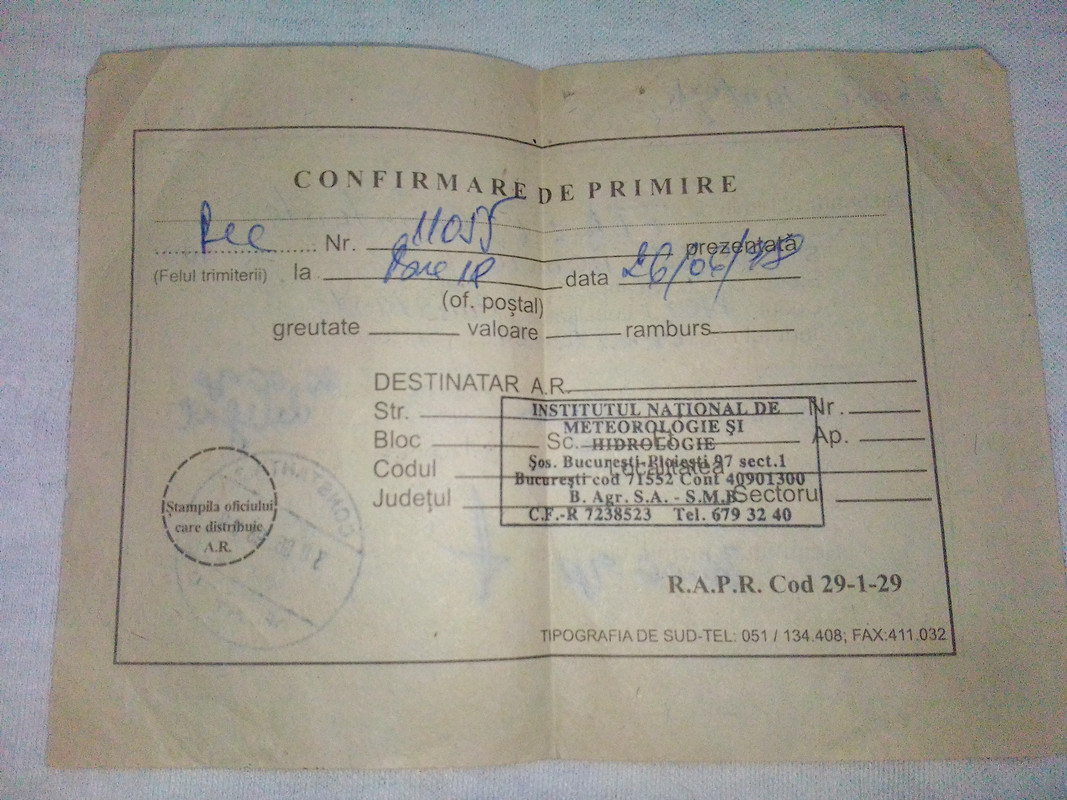 CONFIRMARE DE PRIMIRE
Rec Nr. 11055 prezentată
(Felul trimiterii) la data 26/06/98
(of. poștal)
greutate valoare ramburs
DESTINATAR A.R.
Str. Nr.
Bloc Sc. Et. Ap.
Codul Localitatea
Județul Sectorul
INSTITUTUL NAȚIONAL DE
METEOROLOGIE ȘI
HIDROLOGIE
Șos. București-Ploiești 97 sect.1
București cod 71552 Cont 40901300
B. Agr. S.A. - S.M.B.
C.F.-R 7238523 Tel. 679 32 40
Ștampila oficiului
care distribuie
A.R.
R.A.P.R. Cod 29-1-29
TIPOGRAFIA DE SUD-TEL: 051 / 134.408; FAX:411.032